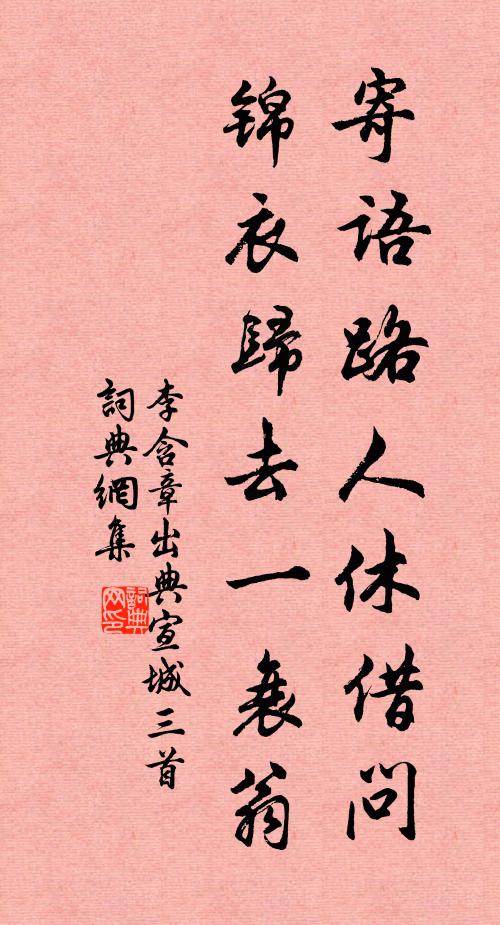 寄語路人休借問
錦衣歸去一衰翁
李含章出典宣城三首
詞典網集
詞典网印